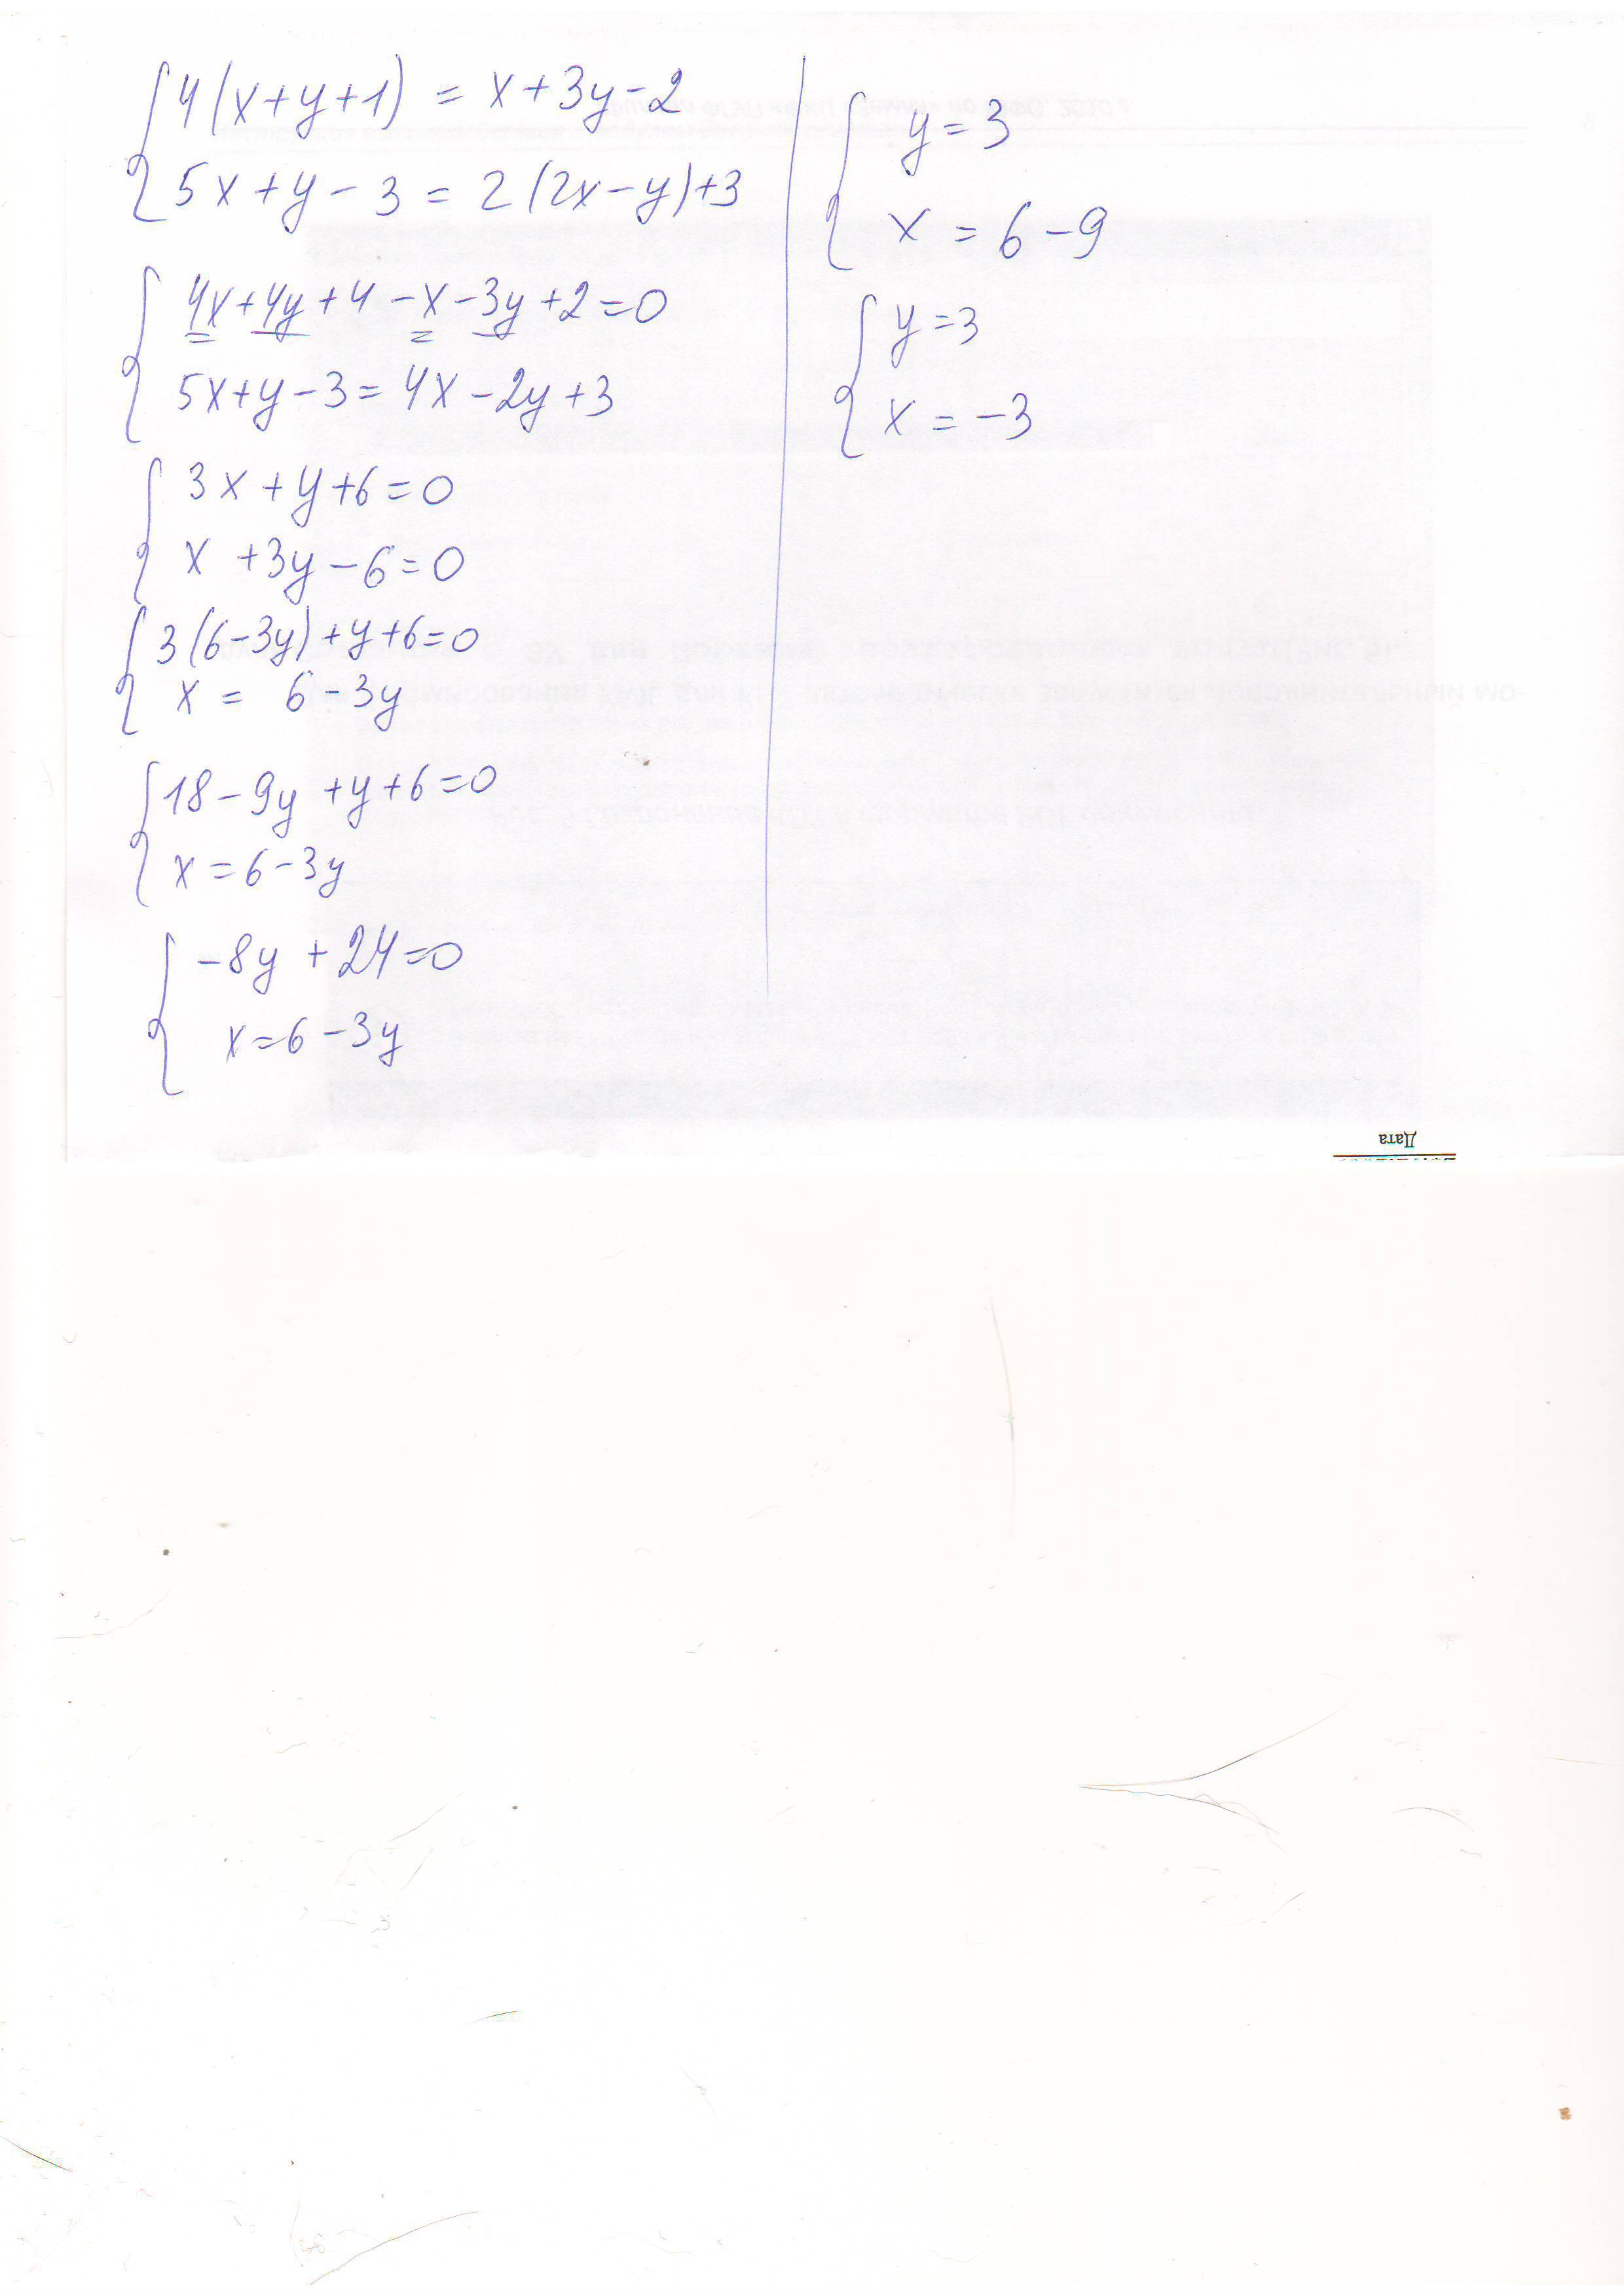 4(x+y+1) = x+3y-2
5x+y-3 = 2(2x-y)+3
4x+4y+4-x-3y+2=0
5x+y-3=4x-2y+3
3x+y+6=0
x+3y-6=0
3(6-3y)+y+6=0
x = 6-3y
18-9y+y+6=0
x=6-3y
-8y+24=0
x=6-3y
y=3
x=6-9
y=3
x=-3
Дата